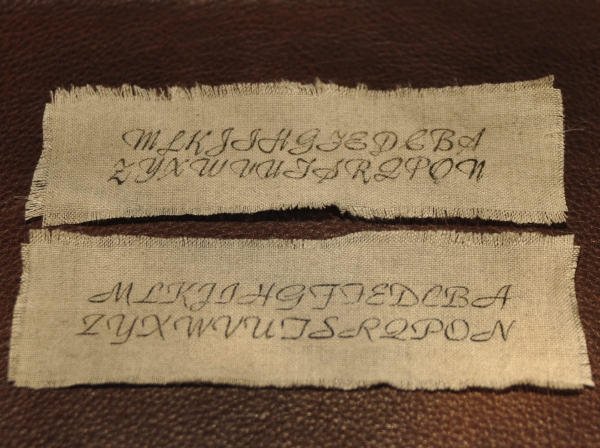 MLKJIHGFEDCBA
ZYXWVUTSRQPON
MLKJIHGFFEDCBA
ZYXWVUTSRQPON